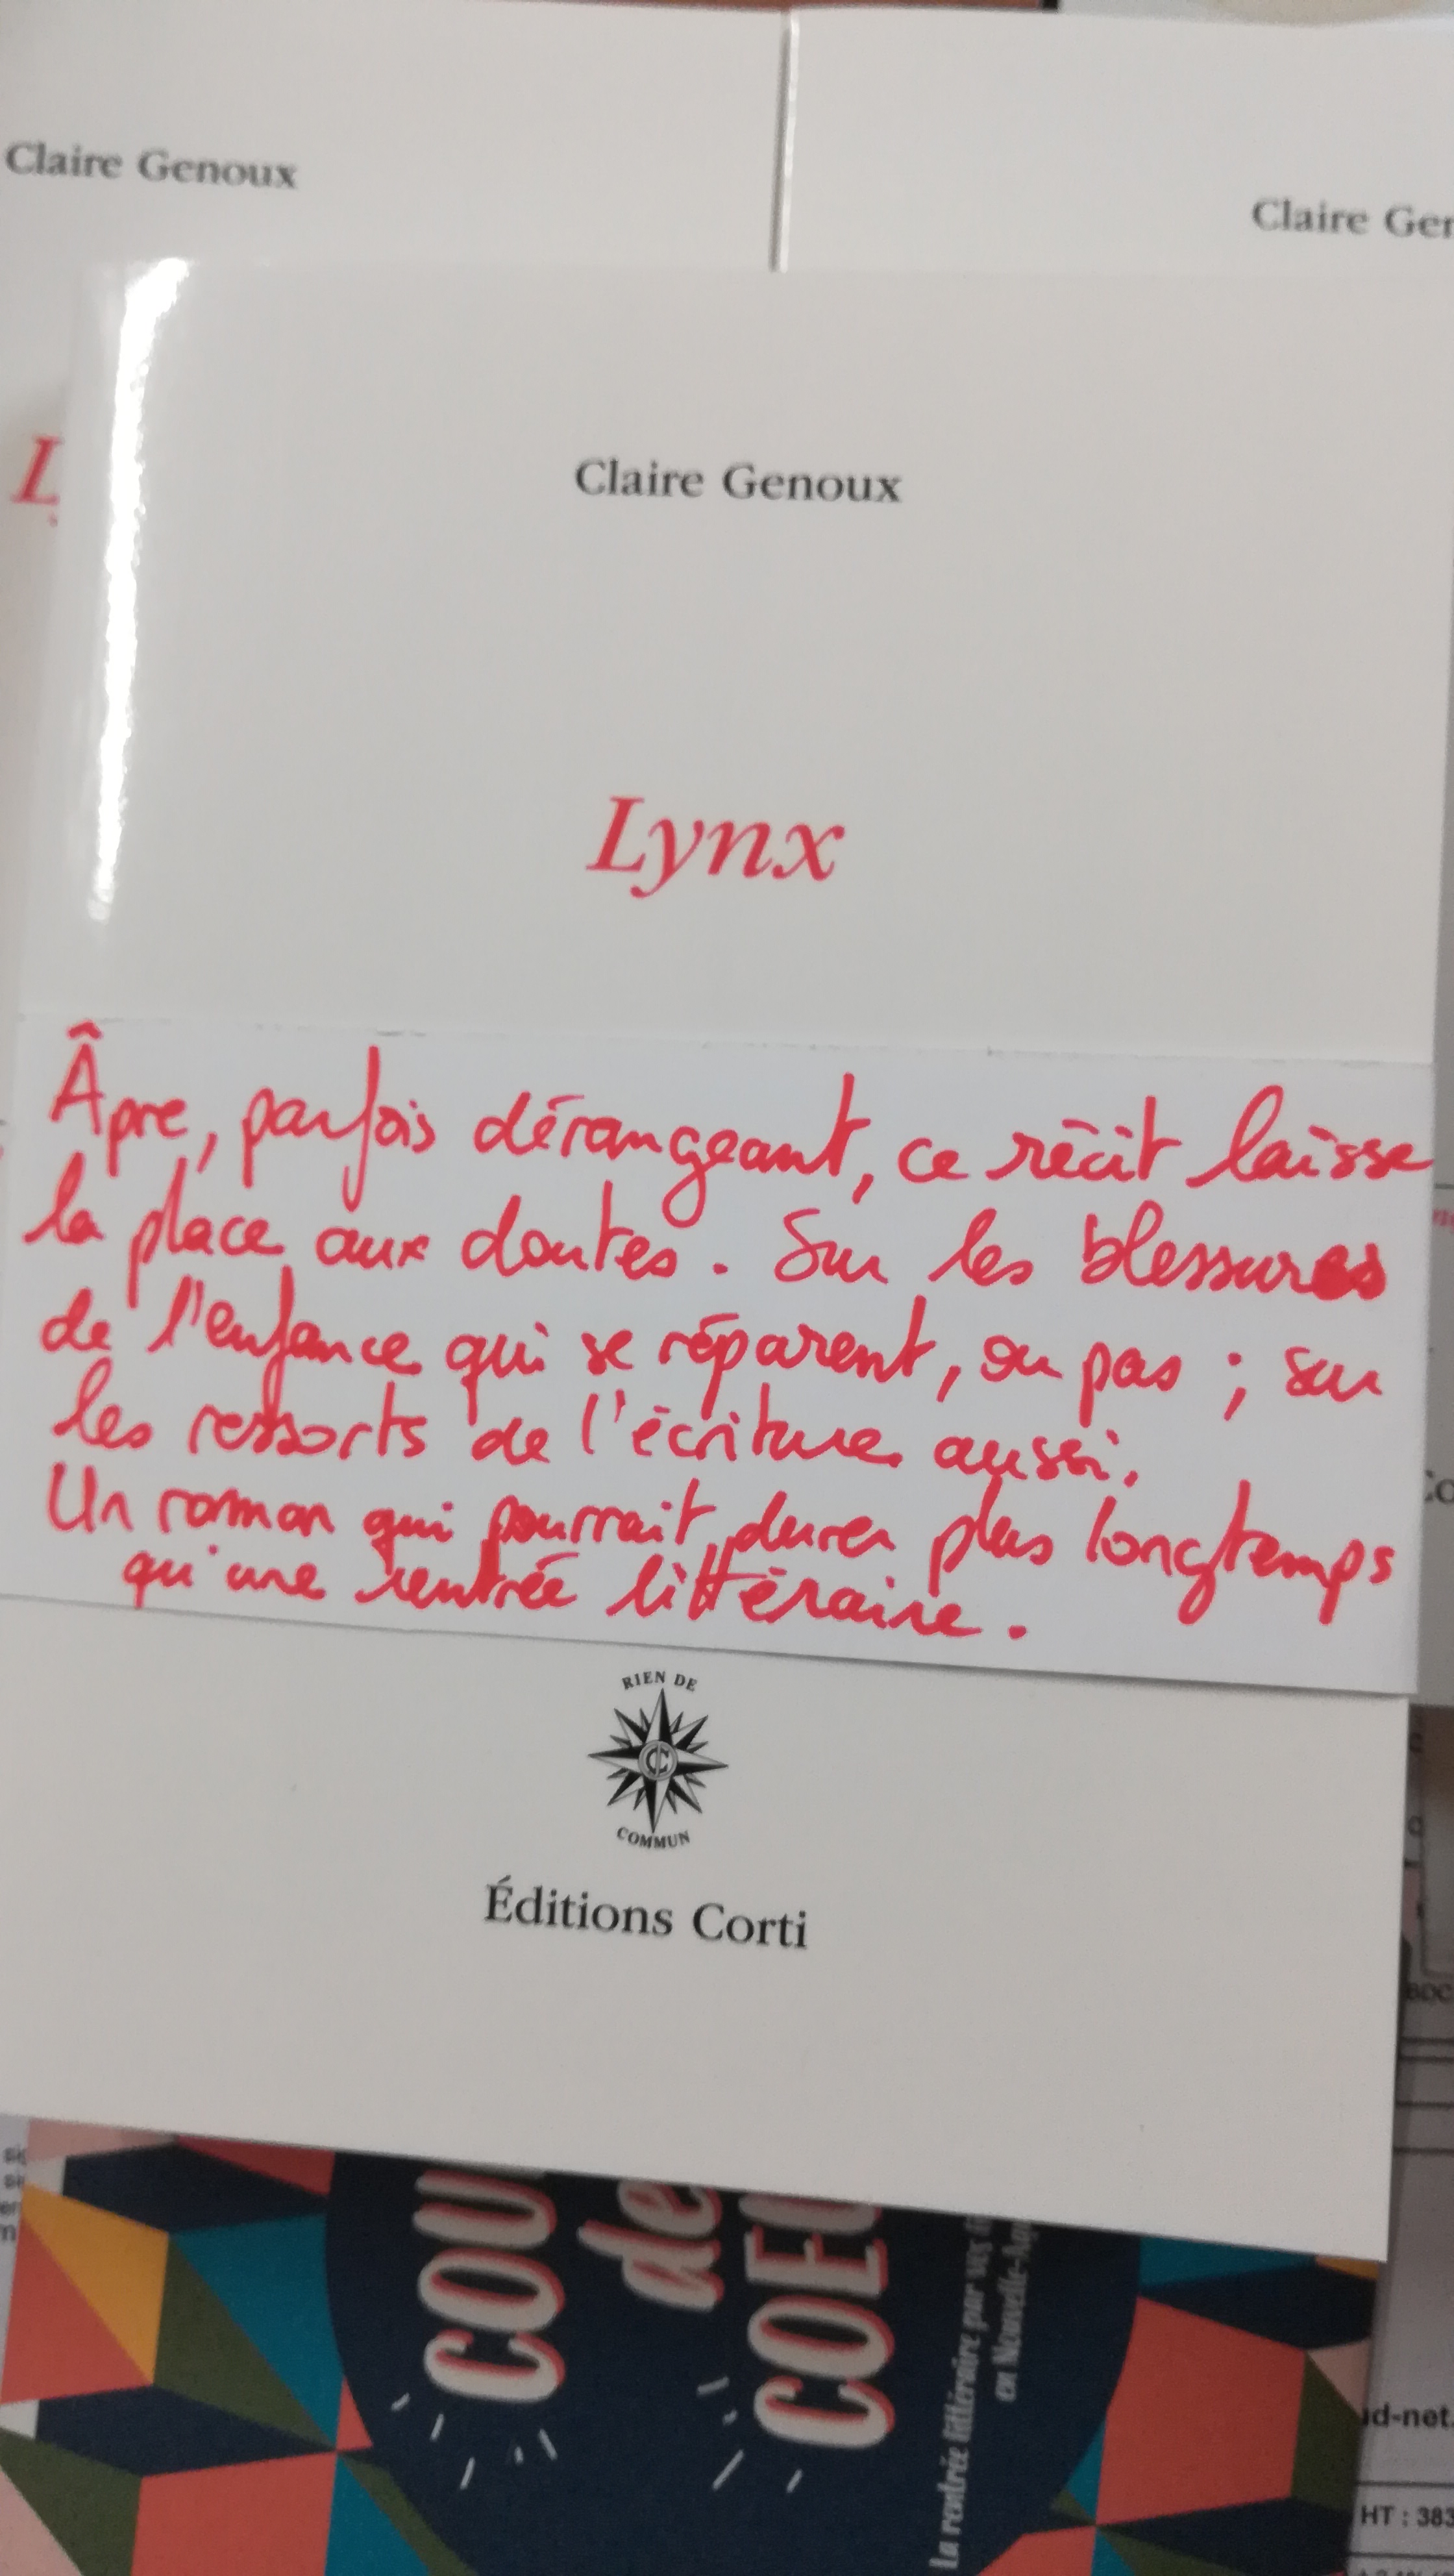 Claire Genoux
Claire
Claire Genoux
Lynx
Âpre, parfois dérangeant, ce récit laisse
la place aux doutes. Sur les blessures
de l'enfance qui se réparent, ou pas ; sur
les ressorts de l'écriture aussi.
Un roman qui pourrait durer plus longtemps
qu'une rentrée littéraire.
RIEN DE
COMMUN
Éditions Corti
de
La rentrée littéraire par vos
en
HT : 383